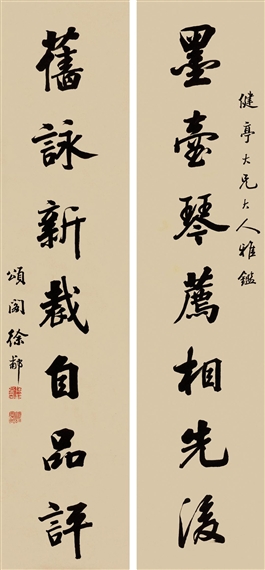 健亭大兄大人雅鑑
墨壺琴薦相先後
舊詠新裁自品評
頌閣徐郙